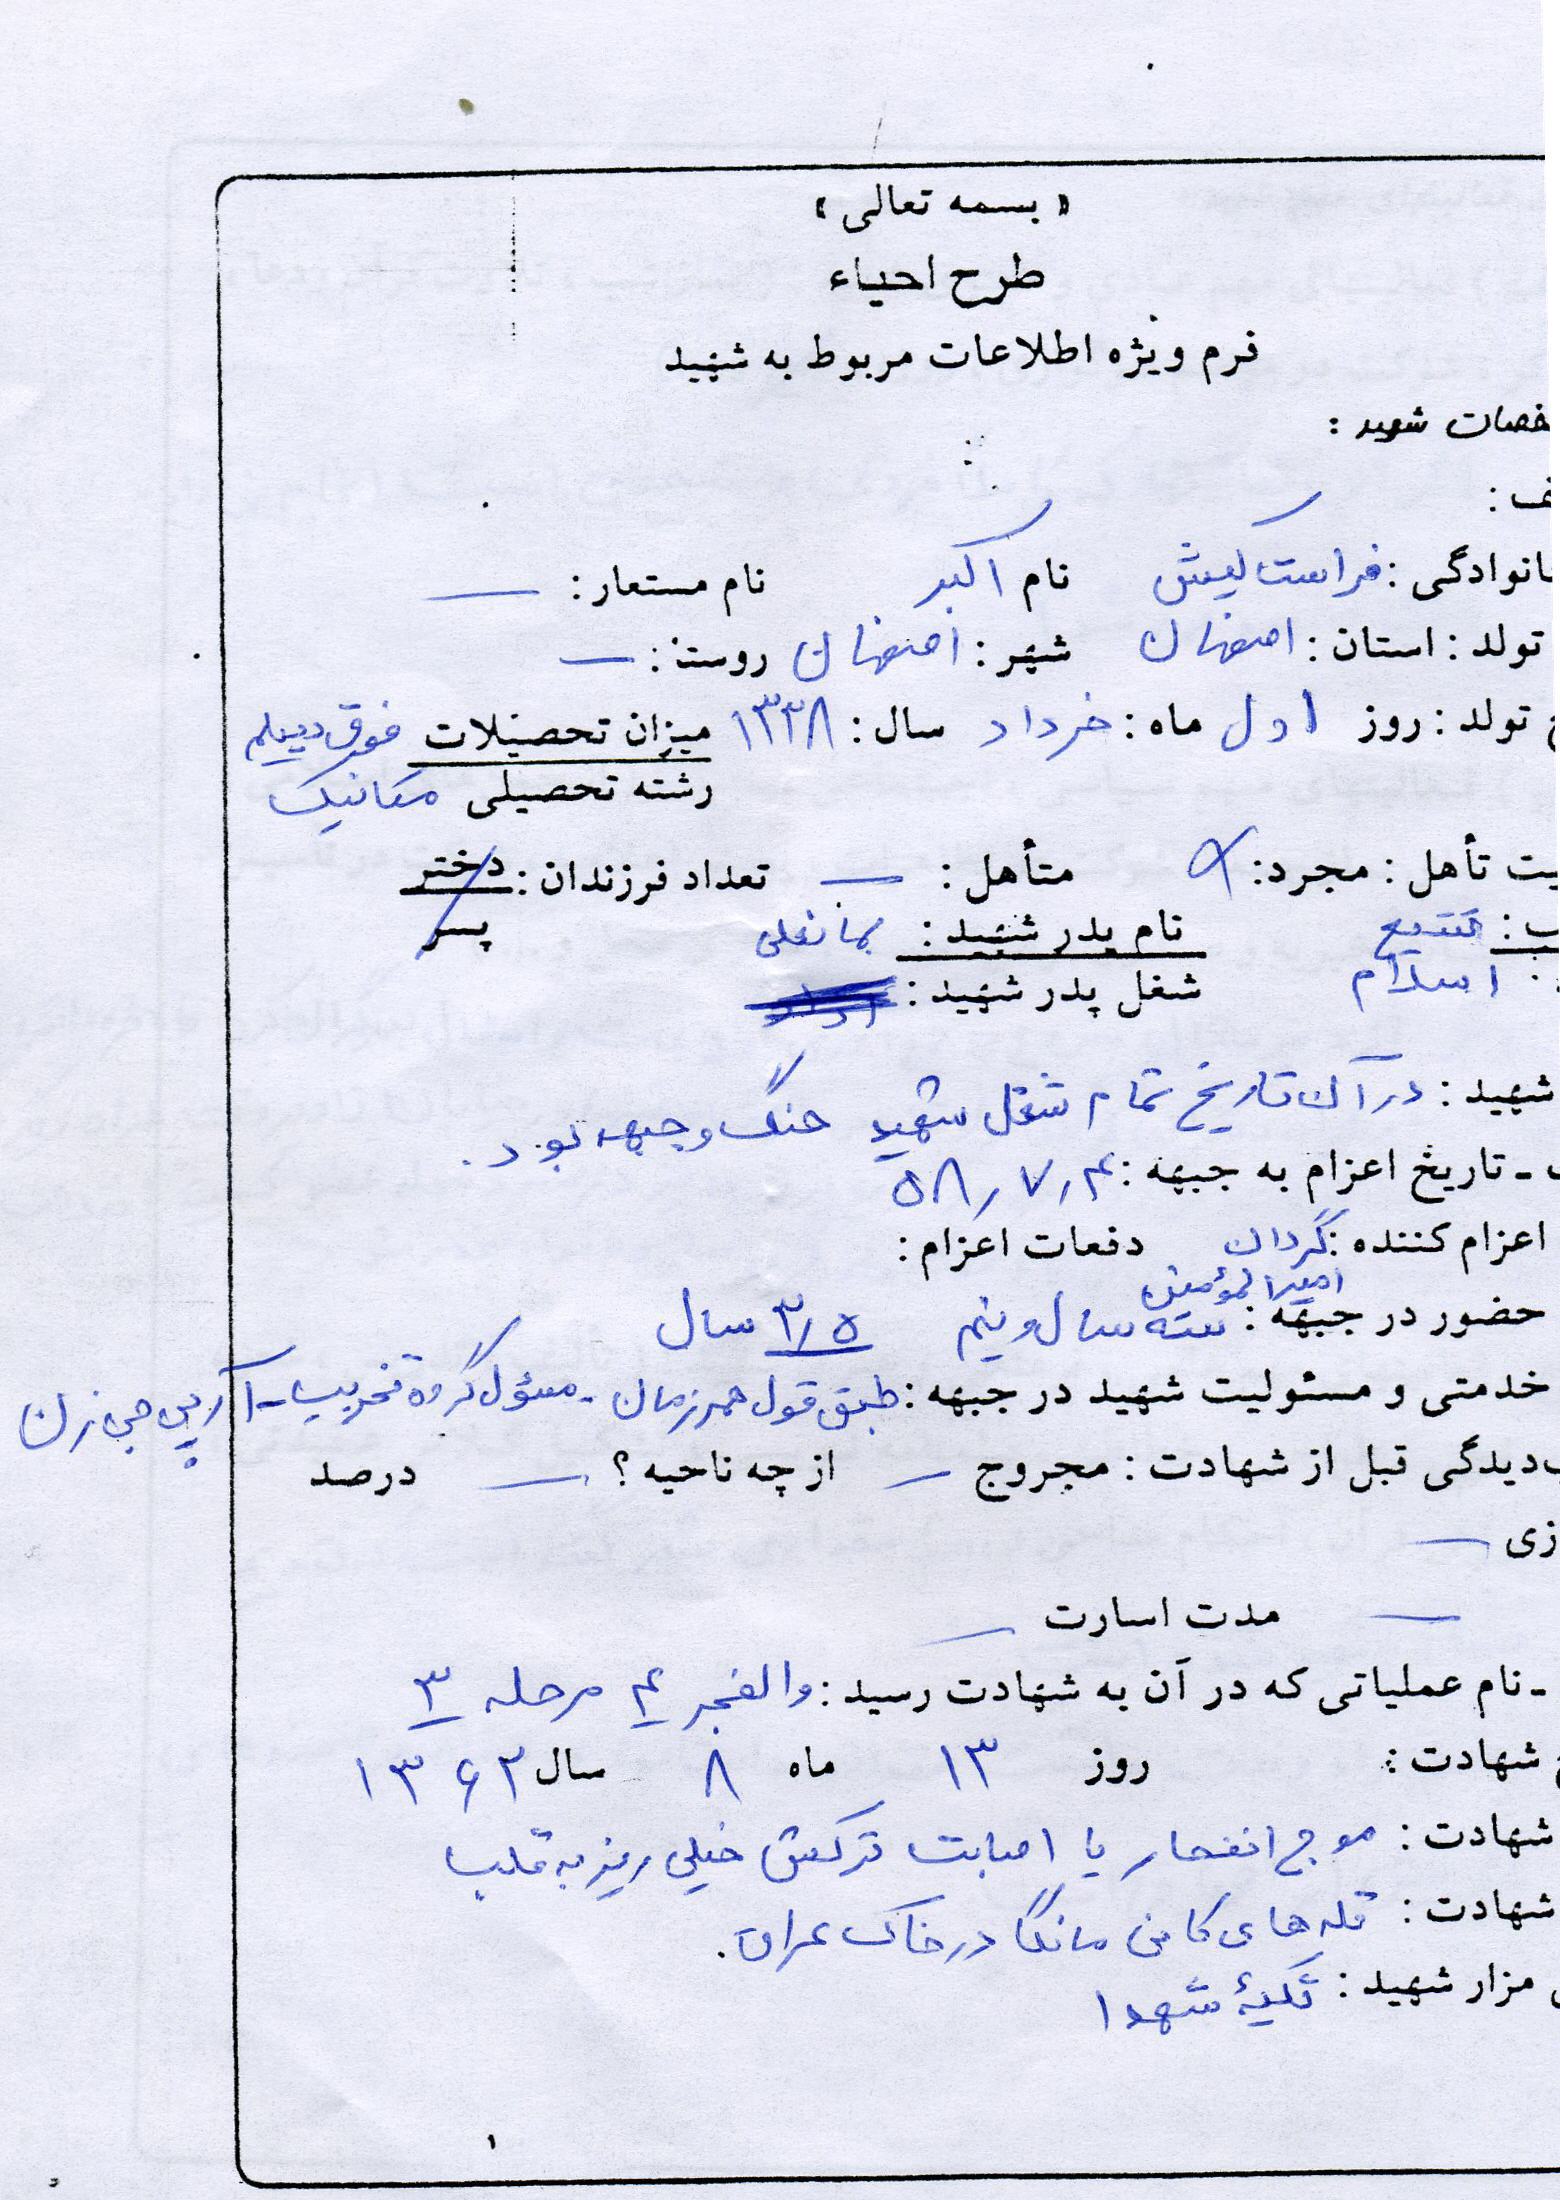 « بسمه تعالی »
طرح احیاء
فرم ویژه اطلاعات مربوط به شهید
شهید :
انوادگی : فراست کیش نام اکبر نام مستعار : ـــ
تولد : استان : اصفهان شهر : اصفهان روستا : ـــ
تولد : روز اول ماه : خرداد سال : ۱۳۳۸ میزان تحصیلات فوق دیپلم
رشته تحصیلی مکانیک
تأهل : مجرد : متأهل : ـــ تعداد فرزندان : دختر
پسر
تشیع نام پدر شهید : بمانعلی
اسلام شغل پدر شهید :
شهید : در آن تاریخ تمام شغل شهید جنگ و جبهه بود .
- تاریخ اعزام به جبهه : ۵۸/۷/۴
اعزام کننده : گردان امیرالمؤمنین دفعات اعزام :
حضور در جبهه : سه سال و نیم ۳/۵ سال
خدمتی و مسئولیت شهید در جبهه : طبق قول همرزمان - مسؤل گروه تخریب - آرپی جی زن
دیدگی قبل از شهادت : مجروح ـــ از چه ناحیه ؟ ـــ درصد
زی ـــ
ـــ مدت اسارت ـــ
- نام عملیاتی که در آن به شهادت رسید : والفجر ۴ مرحله ۳
شهادت : روز ۱۳ ماه ۸ سال ۱۳۶۲
شهادت : موج انفجار یا اصابت ترکش خیلی ریز به قلب
شهادت : قله های کانی مانگا در خاک عراق .
مزار شهید : تکیهٔ شهدا
۱